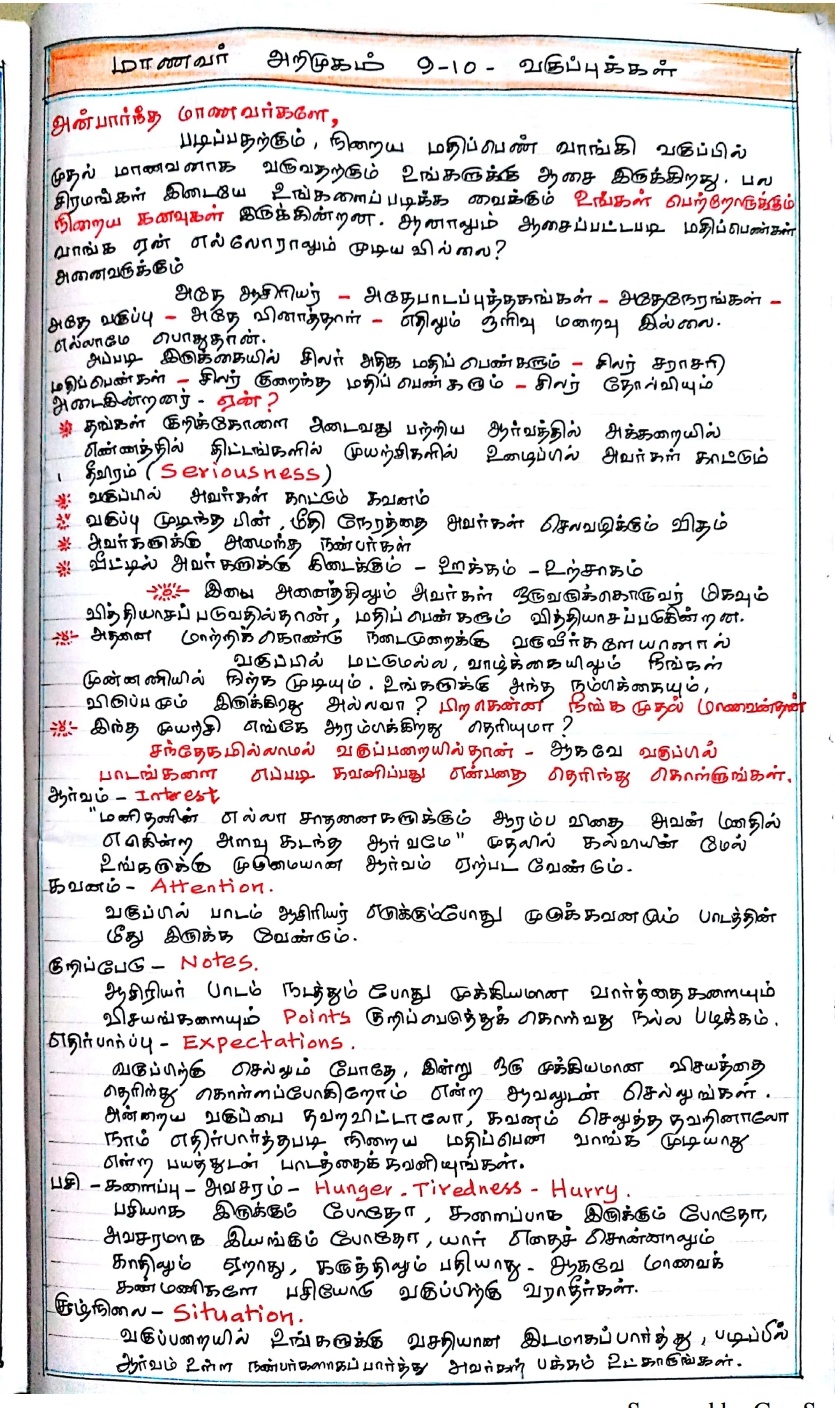 மாணவர் அறிமுகம் 9-10 - வகுப்புக்கள்
அன்பார்ந்த மாணவர்களே,
படிப்பதற்கும், நிறைய மதிப்பெண் வாங்கி வகுப்பில்
முதல் மாணவனாக வருவதற்கும் உங்களுக்கு ஆசை இருக்கிறது. பல
சிரமங்கள் இடையே உங்களைப்படிக்க வைக்கும் உங்கள் பெற்றோருக்கும்
நிறைய கனவுகள் இருக்கின்றன. ஆனாலும் ஆசைப்பட்டபடி மதிப்பெண்கள்
வாங்க ஏன் எல்லோராலும் முடிய வில்லை?
அனைவருக்கும்
அதே ஆசிரியர் - அதேபாடப்புத்தகங்கள் - அதேநேரங்கள் -
அதே வகுப்பு - அதே வினாத்தாள் - எதிலும் ஒளிவு மறைவு இல்லை.
எல்லாமே பொதுதான்.
அப்படி இருக்கையில் சிலர் அதிக மதிப் பெண்களும் - சிலர் சராசரி
மதிப்பெண்கள் - சிலர் குறைந்த மதிப் பெண்களும் - சிலர் தோல்வியும்
அடைகின்றனர் - ஏன்?
* தங்கள் குறிக்கோளை அடைவது பற்றிய ஆர்வத்தில் அக்கறையில்
எண்ணத்தில் திட்டங்களில் முயற்சிகளில் உழைப்பில் அவர்கள் காட்டும்
தீவிரம் (Seriousness)
* வகுப்பில் அவர்கள் காட்டும் கவனம்
* வகுப்பு முடிந்த பின், மீதி நேரத்தை அவர்கள் செலவழிக்கும் விதம்
* அவர்களுக்கு அமைந்த நண்பர்கள்
* வீட்டில் அவர்களுக்கு கிடைக்கும் - ஊக்கம் - உற்சாகம்
* இவை அனைத்திலும் அவர்கள் ஒருவருக்கொருவர் மிகவும்
வித்தியாசப் படுவதில்தான், மதிப் பெண்களும் வித்தியாசப்படுகின்றன.
* அதனை மாற்றிக்கொண்டு நடைமுறைக்கு வருவீர்களேயானால்
வகுப்பில் மட்டுமல்ல, வாழ்க்கையிலும் நீங்கள்
முன்னணியில் நிற்க முடியும். உங்களுக்கு அந்த நம்பிக்கையும்,
விருப்பமும் இருக்கிறது அல்லவா? பிறகென்ன நீங்க முதல் மாணவன்தான்
* இந்த முயற்சி எங்கே ஆரம்பிக்கிறது தெரியுமா?
சந்தேகமில்லாமல் வகுப்பறையில்தான் - ஆகவே வகுப்பில்
பாடங்களை எப்படி கவனிப்பது என்பதை தெரிந்து கொள்ளுங்கள்.
ஆர்வம் - Interest
"மனிதனின் எல்லா சாதனைகளுக்கும் ஆரம்ப விதை அவன் மனதில்
எழுகின்ற அளவு கடந்த ஆர்வமே" முதலில் கல்வியின் மேல்
உங்களுக்கு முழுமையான ஆர்வம் ஏற்பட வேண்டும்.
கவனம் - Attention.
வகுப்பில் பாடம் ஆசிரியர் எடுக்கும்போது முழுக்கவனமும் பாடத்தின்
மீது இருக்க வேண்டும்.
குறிப்பேடு - Notes.
ஆசிரியர் பாடம் நடத்தும் போது முக்கியமான வார்த்தைகளையும்
விசயங்களையும் Points குறிப்பெடுத்துக் கொள்வது நல்ல பழக்கம்.
எதிர்பார்ப்பு - Expectations.
வகுப்பிற்கு செல்லும் போதே, இன்று ஒரு முக்கியமான விசயத்தை
தெரிந்து கொள்ளப்போகிறோம் என்ற ஆவலுடன் செல்லுங்கள்.
அன்றைய வகுப்பை தவறவிட்டாலோ, கவனம் செலுத்த தவறினாலோ
நாம் எதிர்பார்த்தபடி நிறைய மதிப்பெண் வாங்க முடியாது
என்ற பயத்துடன் பாடத்தைக் கவனியுங்கள்.
பசி - களைப்பு - அவசரம் - Hunger - Tiredness - Hurry.
பசியாக இருக்கும் போதோ, களைப்பாக இருக்கும் போதோ,
அவசரமாக இயங்கும் போதோ, யார் எதைச் சொன்னாலும்
காதிலும் ஏறாது, கருத்திலும் பதியாது - ஆகவே மாணவக்
கண்மணிகளே பசியோடு வகுப்பிற்கு வராதீர்கள்.
சூழ்நிலை - Situation.
வகுப்பறையில் உங்களுக்கு வசதியான இடமாகப்பார்த்து, படிப்பில்
ஆர்வம் உள்ள நண்பர்களாகப்பார்த்து அவர்கள் பக்கம் உட்காருங்கள்.